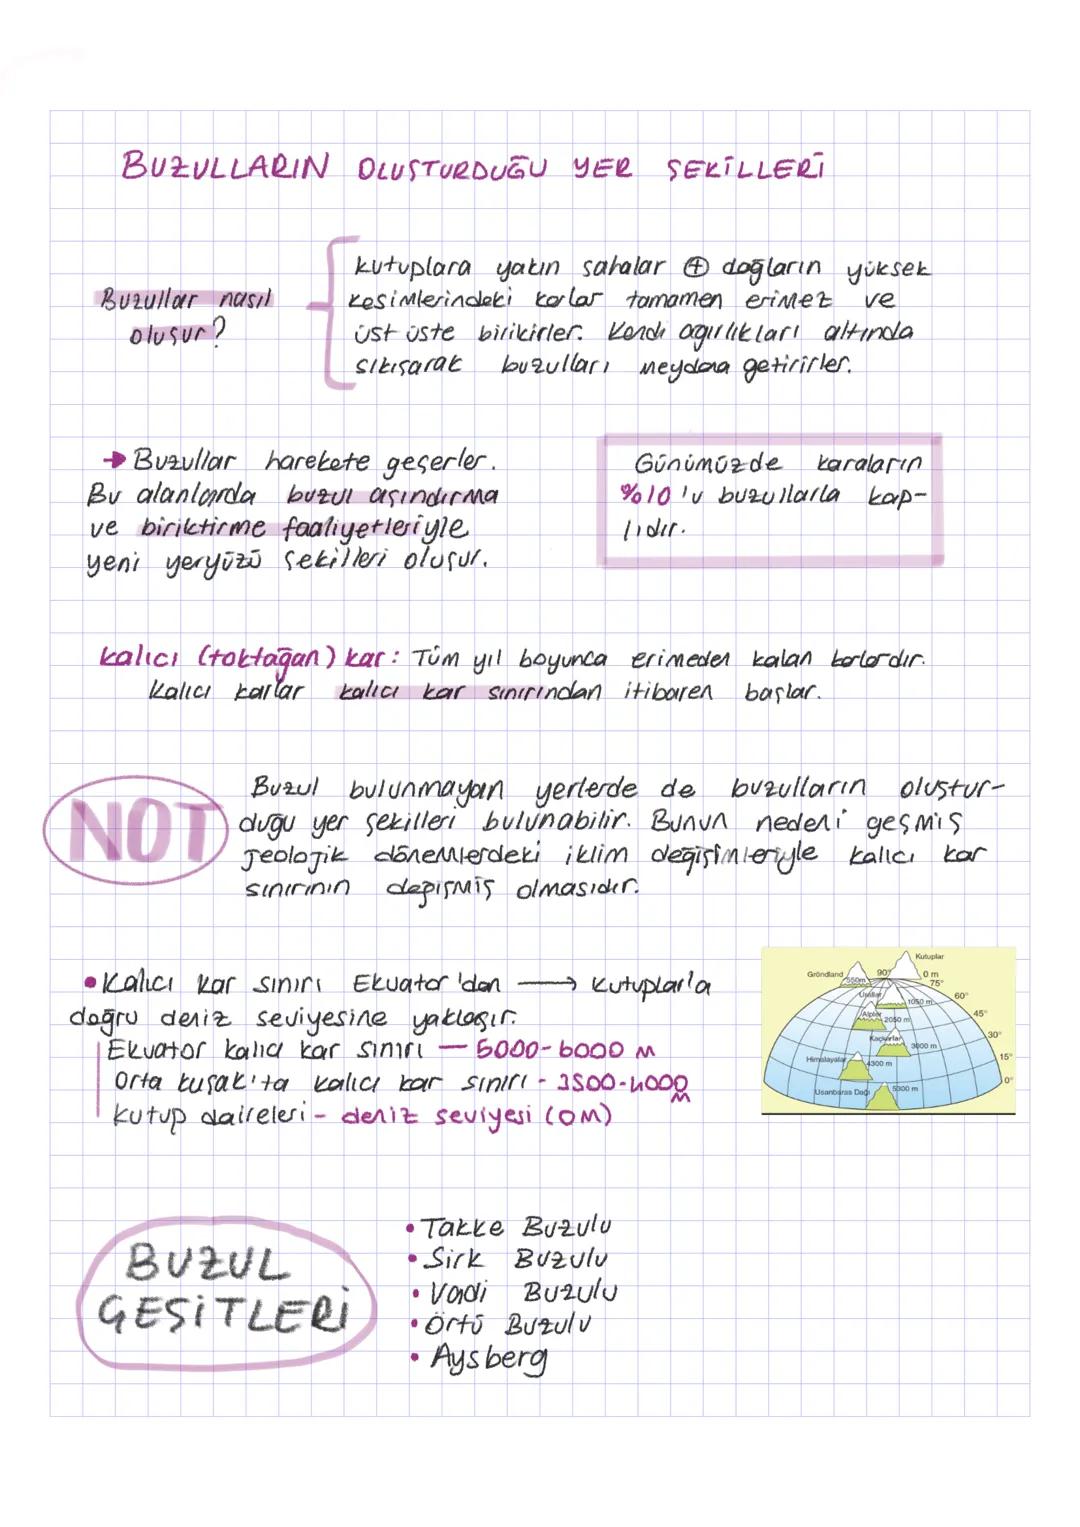 BUZULLARIN OLUŞTURDUĞU YER ŞEKİLLERİ
Buzullar nasıl
oluşur?
kutuplara yakın sahalar + dağların yüksek
kesimlerindeki karlar tamamen erimez ve
üst üste birikirler. Kendi ağırlıkları altında
sıkışarak buzulları meydana getirirler.
→ Buzullar harekete geçerler.
Bu alanlarda buzul aşındırma
ve biriktirme faaliyetleriyle
yeni yeryüzü şekilleri oluşur.
Günümüzde karaların
%10'u buzullarla kap-
lıdır.
kalıcı (toktağan) kar: Tüm yıl boyunca erimeden kalan karlardır.
Kalıcı karlar kalıcı kar sınırından itibaren başlar.
NOT
Buzul bulunmayan yerlerde de buzulların oluştur-
duğu yer şekilleri bulunabilir. Bunun nedeni geçmiş
jeolojik dönemlerdeki iklim değişimleriyle kalıcı kar
sınırının değişmiş olmasıdır.
• Kalıcı kar sınırı Ekvator'dan → Kutuplar'a
doğru deniz seviyesine yaklaşır.
Ekvator kalıcı kar sınırı — 5000-6000 m
Orta kuşak'ta kalıcı kar sınırı - 3500-4000
m
Kutup daireleri - deniz seviyesi (0m)
Kutuplar
Gröndland
90°
0 m
550m
75°
Urallar
1050 m
60°
Alpler
2050 m
45°
Kaçkarlar
3000 m
30°
Himalayalar
4300 m
15°
0°
Usanbaras Dağı
5300 m
BUZUL
ÇEŞİTLERİ
• Takke Buzulu
• Sirk Buzulu
• Vadi Buzulu
• Örtü Buzulu
• Aysberg